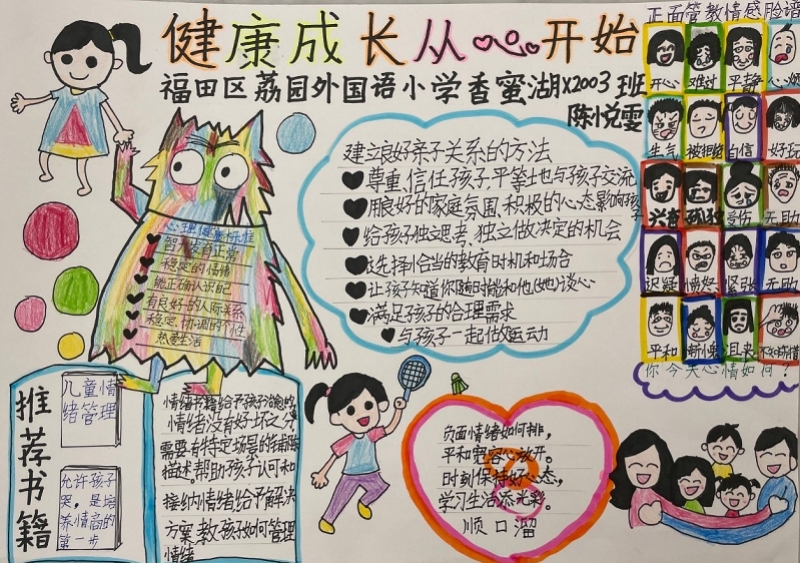 健康成长从心开始
福田区荔园外国语小学香蜜湖X2003班
陈悦雯
正面管教情感脸谱
开心 难过 平静
生气 被拒绝 自信 好玩
兴奋 孤独 受伤
迟疑 愤怒 紧张 无助
平和 沮丧
你今天心情如何?
心理健康标准
智力发育正常
稳定的情绪
能正确认识自己
有良好的人际关系
稳定、协调的个性
热爱生活
建立良好亲子关系的方法
尊重、信任孩子,平等地与孩子交流
用良好的家庭氛围、积极的心态影响孩子
给孩子独立思考、独立做决定的机会
选择恰当的教育时机和场合
让孩子知道你随时能和他(她)谈心
满足孩子的合理需求
与孩子一起做运动
推荐书籍
儿童情
绪管理
允许孩子
哭,是培
养情商的
第一步
情绪书籍给予孩子治愈的
情绪没有好坏之分
需要有特定场景的铺陈
描述。帮助孩子认可和
接纳情绪给予解决
方案,教孩子如何管理
情绪
负面情绪如何排,
平和宽容心放开。
时刻保持好心态,
学习生活添光彩。
顺口溜